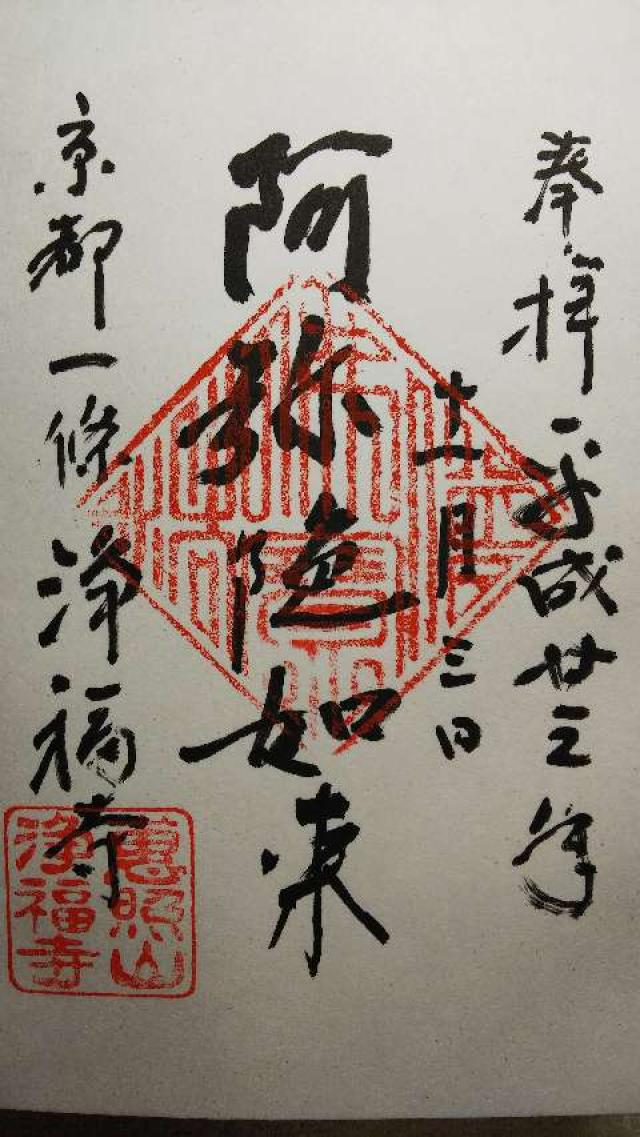 奉拝 平成廿三年
十二月三日
阿弥陀如来
京都一條 浄福寺
恵照山
浄福寺